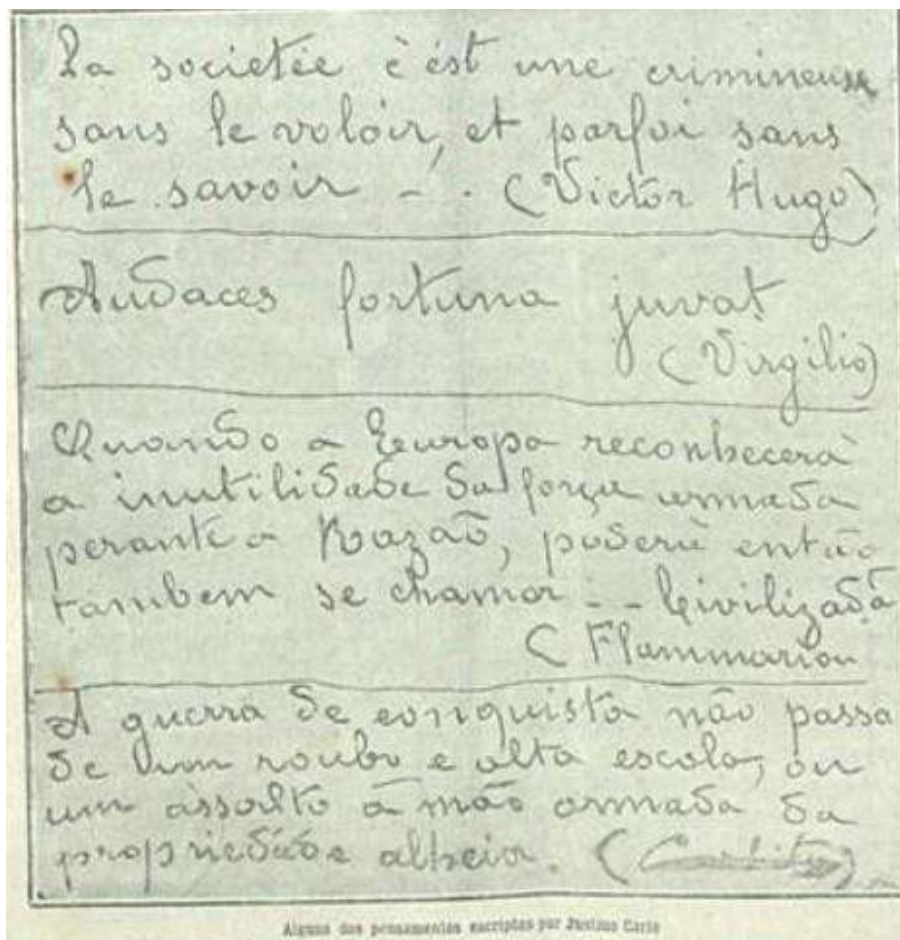 La societée c'ést une crimineuse
sans le voloir, et parfoi sans
le savoir - - (Victor Hugo)
Audaces fortuna juvat
(Virgilio)
Quando a Europa reconhecerà
a inutilidade da força armada
perante a Razaõ, poderà então
tambem se chamar - - Civilizada
( Flammarion
A guerra de conquista não passa
de um roubo e alta escola, ou
um assalto à mão armada da
propriedade alheia.
Alguns dos pensamentos escriptos por Justino Carlo